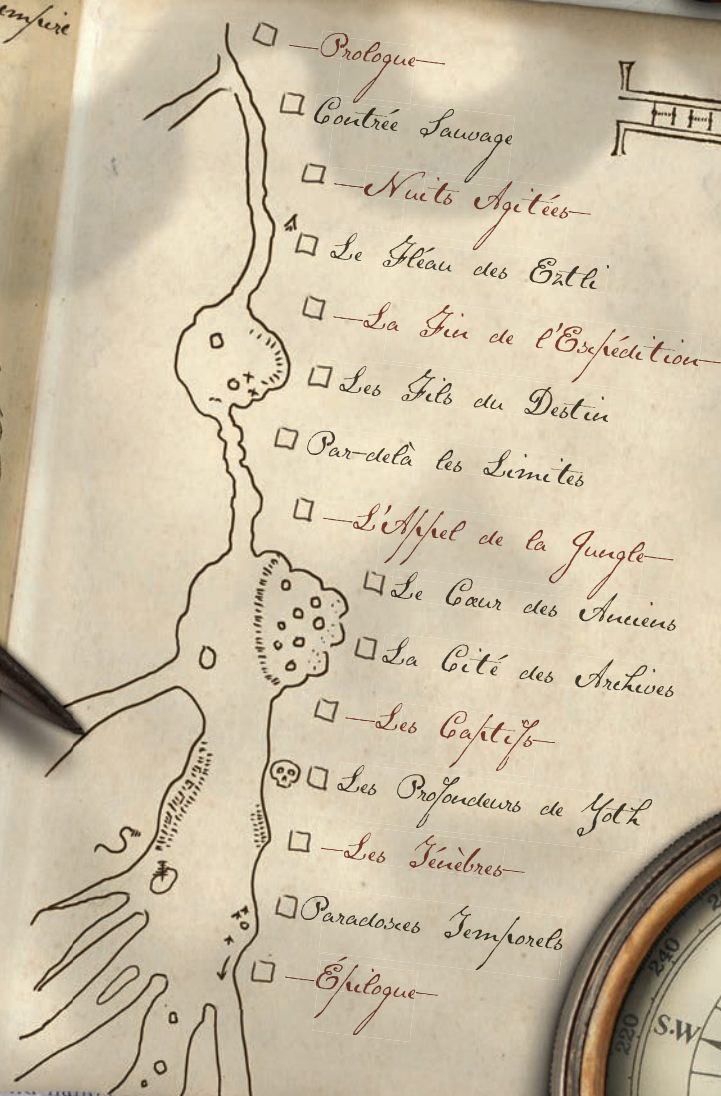 empire
—Prologue—
Contrée Sauvage
—Nuits Agitées—
Le Fléau des Eztli
—La Fin de l'Expédition—
Les Fils du Destin
Par-delà les Limites
—L'Appel de la Jungle—
Le Cœur des Anciens
La Cité des Archives
—Les Captifs—
Les Profondeurs de Yoth
—Les Ténèbres—
Paradoxes Temporels
—Épilogue—
240
220
S.W